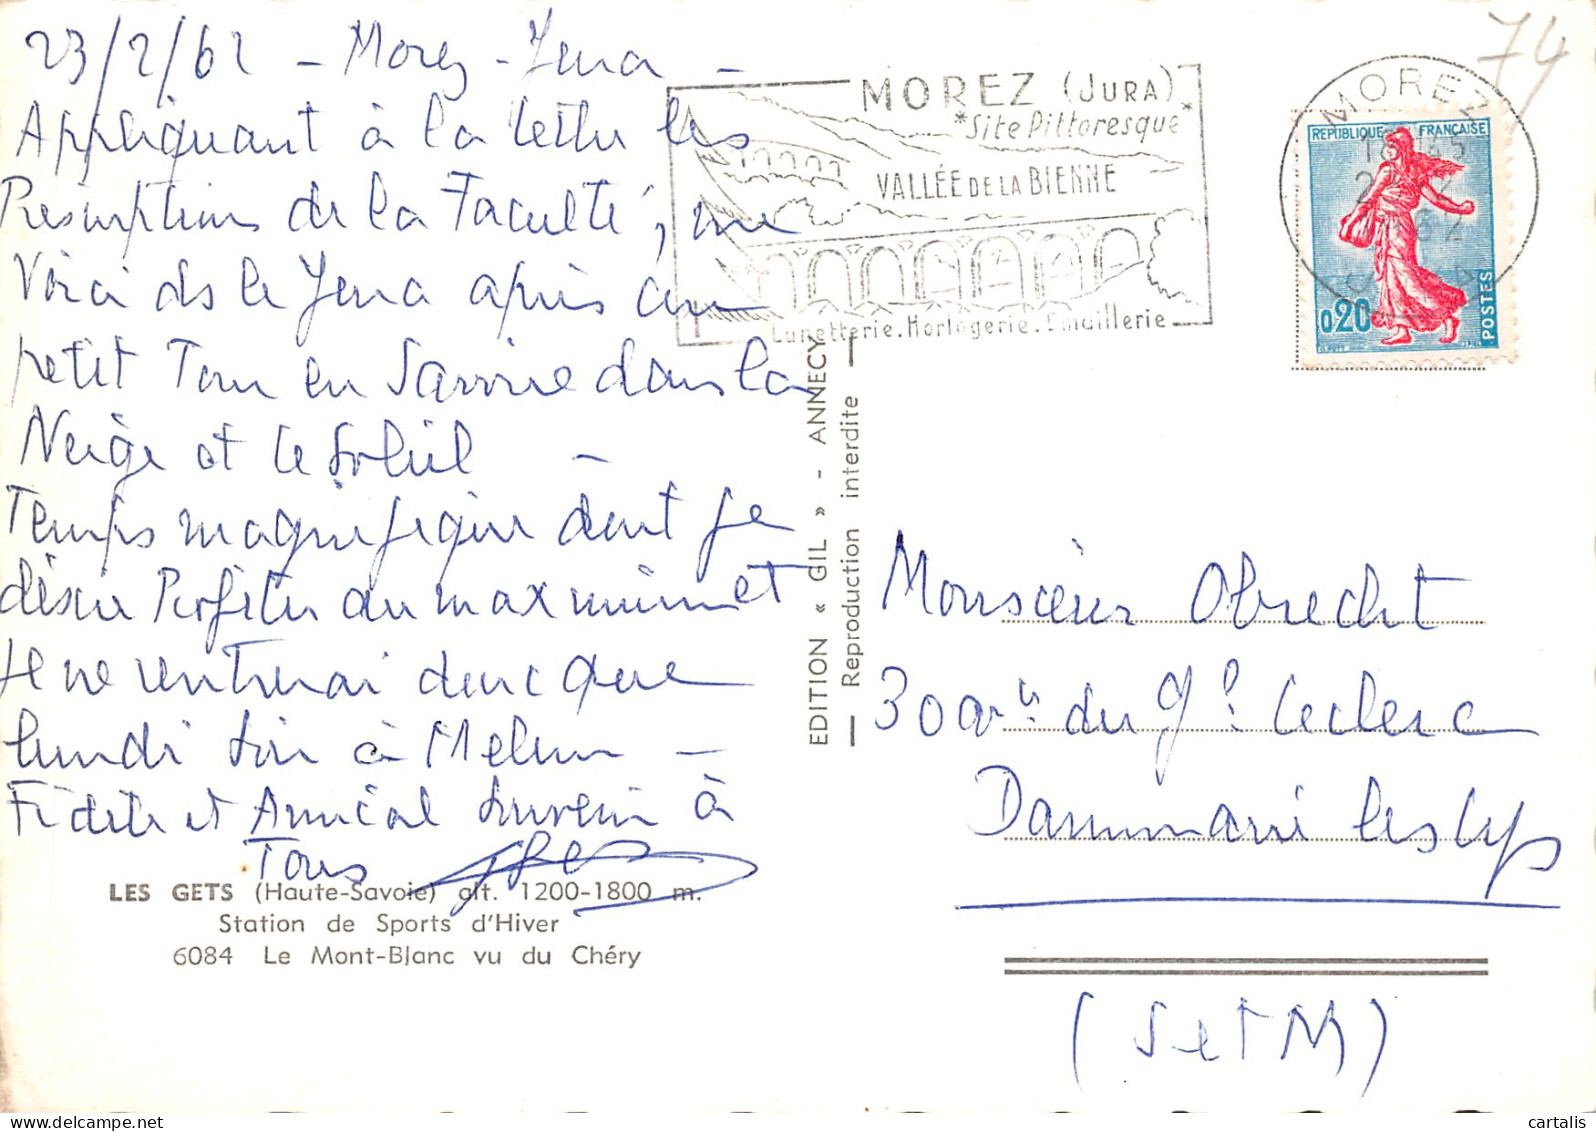 23/2/62 - Morez - Jura -
Appliquant à la lettre les
Prescriptions de la Faculté, me
Voici ds le Jura après un
petit Tour en Savoie dans la
Neige et le Soleil -
Temps magnifique dont je
désire Profiter au maximum et
Je ne rentrerai donc que
lundi soir à Melun -
Fidèle et Amical Souvenir à
Tous
LES GETS (Haute-Savoie) alt. 1200-1800 m.
Station de Sports d'Hiver
6084 Le Mont-Blanc vu du Chéry
EDITION « GIL » - ANNECY
Reproduction interdite
MOREZ (JURA)
*Site Pittoresque*
VALLÉE DE LA BIENNE
Lunetterie. Horlogerie. Emaillerie
74
MOREZ
REPUBLIQUE FRANÇAISE
0,20
POSTES
Monsieur Obrecht
300 av. du Gl. Leclerc
Dammarie les Lys
(S et M)
cartalis
www.delcampe.net